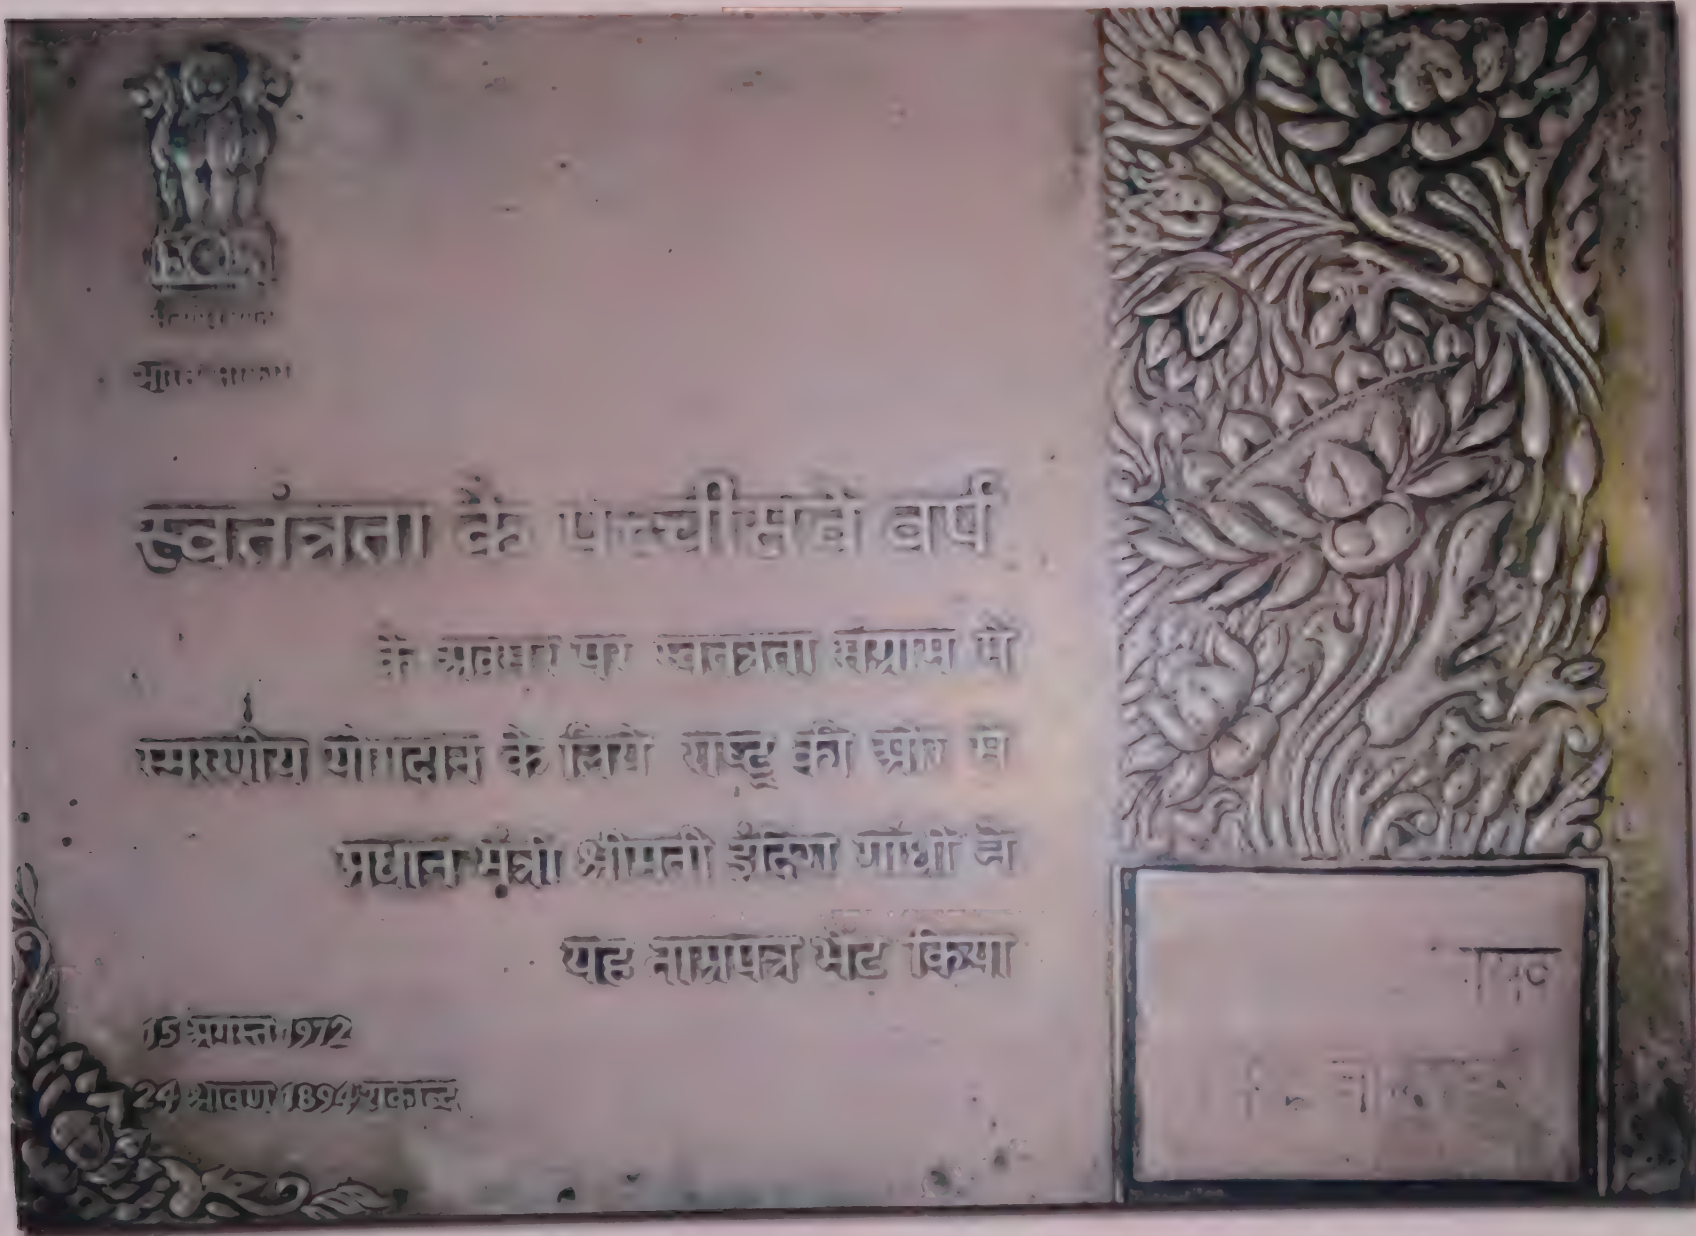 भारत सरकार
स्वतंत्रता के पच्चीसवें वर्ष
के अवसर पर स्वतंत्रता संग्राम में
स्मरणीय योगदान के लिये राष्ट्र की ओर से
प्रधान मंत्री श्रीमती इंदिरा गाँधी ने
यह ताम्रपत्र भेंट किया
15 अगस्त 1972
24 श्रावण 1894 शकाब्द